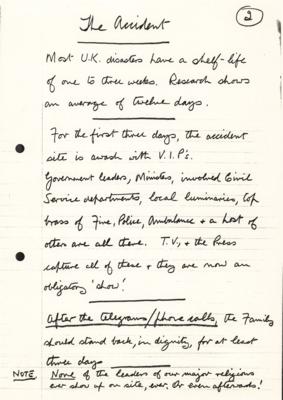 2
The Accident
Most U.K. disasters have a shelf-life
of one to three weeks. Research shows
an average of twelve days.
For the first three days, the accident
site is awash with V.I.P's.
Government leaders, Ministers, involved Civil
Service departments, local luminaries, top
brass of Fire, Police, Ambulance & a host of
others are all there. T.V., & the Press
capture all of these & they are now an
obligatory 'show'.
After the telegrams/phone calls, the Family
should stand back, in dignity, for at least
three days
NOTE None of the leaders of our major religions
ever show up on site, ever. Or even afterwards!